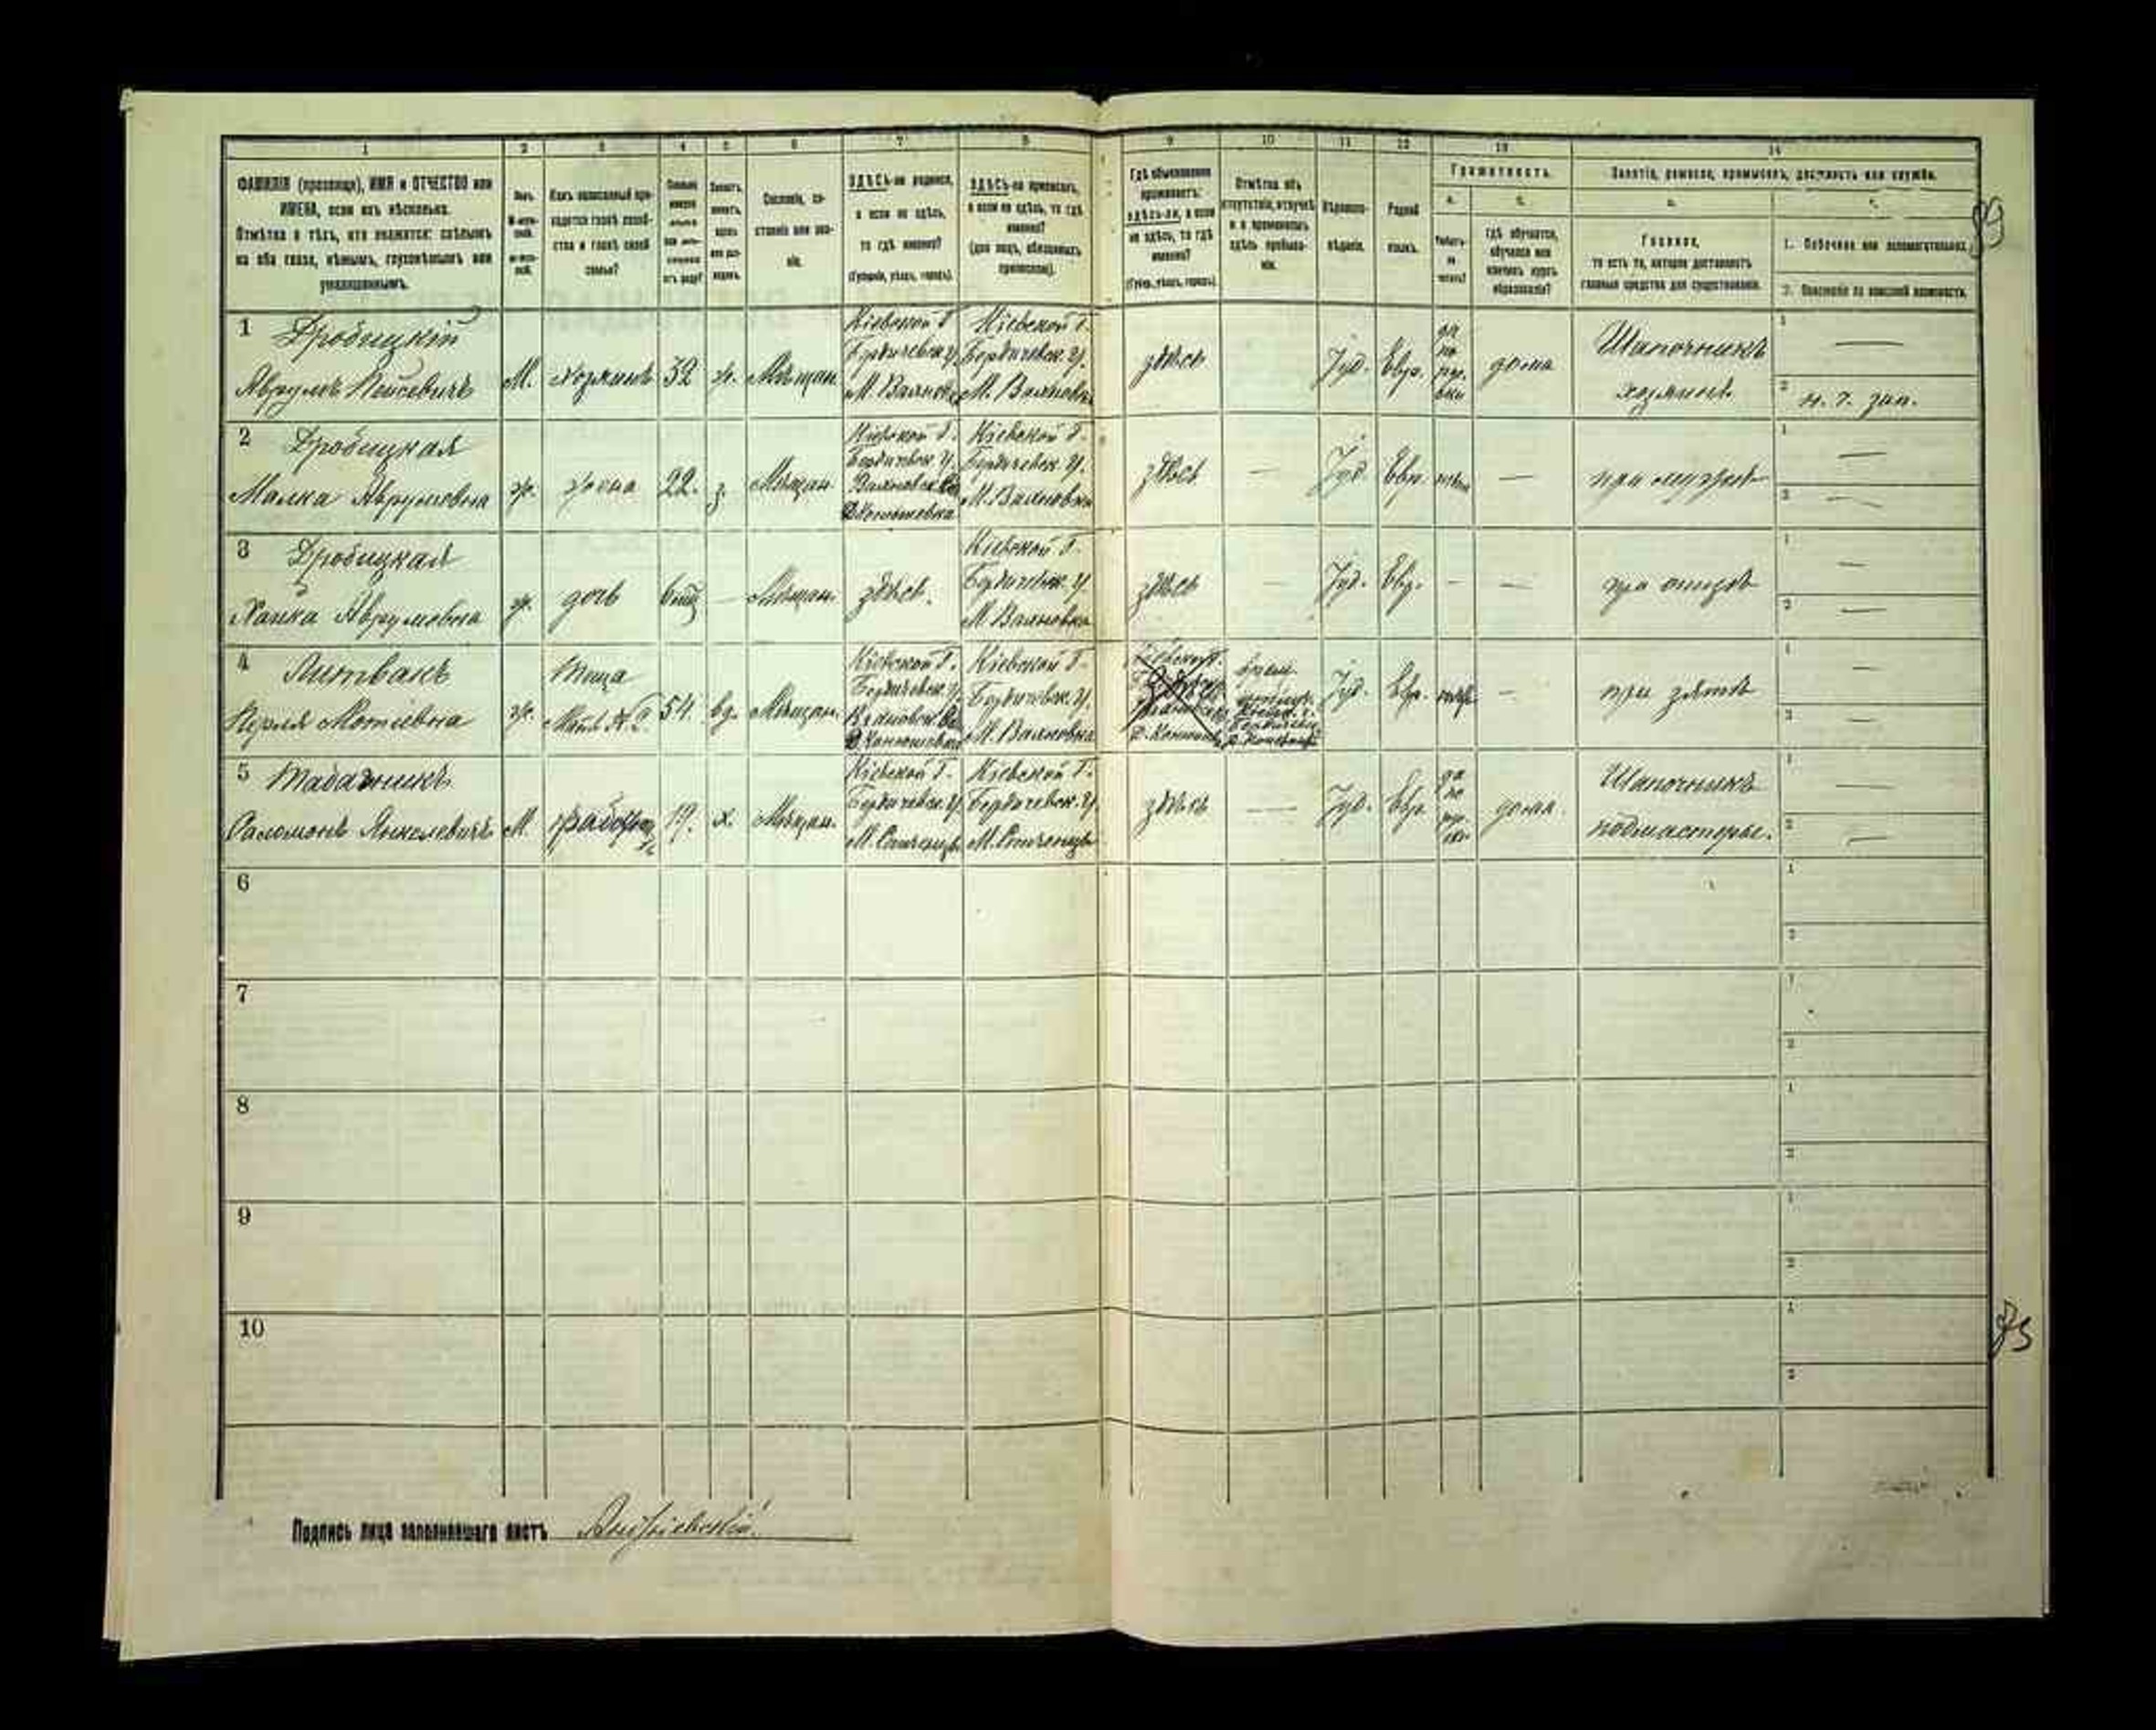 1 2 3 4 5 6 7 8 9 10 11 12 13 14
ФАМИЛІЯ (прозвище), ИМЯ и ОТЧЕСТВО или
ИМЕНА, если ихъ нѣсколько.
Отмѣтка о тѣхъ, кто окажется: слѣпымъ
на оба глаза, нѣмымъ, глухонѣмымъ или
умалишеннымъ.
Полъ.
Какъ записанный при-
ходится главѣ хозяй-
ства и главѣ своей
семьи?
Сословіе, со-
стояніе или зва-
ніе.
ЗДѢСЬ-ли родился,
а если не здѣсь,
то гдѣ именно?
(Губернія, уѣздъ, городъ).
ЗДѢСЬ-ли приписанъ,
а если не здѣсь, то гдѣ
именно?
(для лицъ, обязанныхъ
припискою).
Гдѣ обыкновенно
проживаетъ:
здѣсь-ли, а если
не здѣсь, то гдѣ
именно?
(Губер., уѣздъ, городъ).
Отмѣтка объ
отсутствіи, отлучкѣ
и о временномъ
здѣсь пребыва-
ніи.
Вѣроиспо-
вѣданіе.
Родной
языкъ.
Грамотность.
а.
Умѣетъ-
ли
читать?
б.
гдѣ обучается,
обучался или
кончилъ курсъ
образованія?
Занятіе, ремесло, промыселъ, должность или служба.
а.
Главное,
то есть то, которое доставляетъ
главныя средства для существованія.
1. Побочное или вспомогательное.
2. Положеніе по воинской повинности.
89
1 Дробицкій
Аврумъ Пейсевичъ
М.
хозяинъ
32
ж.
Мѣщан.
Кіевской Г.
Бердичевск. У.
М. Вахновка
Кіевской Г.
Бердичевск. У.
М. Вахновка
здѣсь
Іуд.
Евр.
да
по
рус-
ски
дома
Шапочникъ
хозяинъ
1 —
2 н. ч. зап.
2 Дробицкая
Малка Аврумовна
ж.
жена
22.
з.
Мѣщан.
Кіевской Г.
Бердичевск. У.
Вахновск. Вол.
Д. Конюшевка
Кіевской Г.
Бердичевск. У.
М. Вахновка
здѣсь
—
Іуд.
Евр.
нѣтъ
—
при мужѣ
1 —
2 —
3 Дробицкая
Хайка Аврумовна
ж.
дочь
6 мѣс.
—
Мѣщан.
здѣсь.
Кіевской Г.
Бердичевск. У.
М. Вахновка
здѣсь
—
Іуд.
Евр.
—
—
при отцѣ
1 —
2 —
4 Литвакъ
Перля Мотіевна
ж.
Теща
Мать №2.
54.
вд.
Мѣщан.
Кіевской Г.
Бердичевск. У.
Вахновск. Вол.
Д. Конюшевка
Кіевской Г.
Бердичевск. У.
М. Вахновка
Іуд.
Евр.
нѣтъ
—
при зятѣ
1 —
2 —
5 Табачникъ
Саломонъ Янкелевичъ
М.
19.
х.
Мѣщан.
Кіевской Г.
Бердичевск. У.
Кіевской Г.
Бердичевск. У.
здѣсь
—
Іуд.
Евр.
да
по
рус-
ски
дома
Шапочникъ
подмастерье.
1
2 —
6
1
2
7
1
2
8
1
2
9
1
2
10
1
2
Подпись лица заполнявшаго листъ Андріевскій